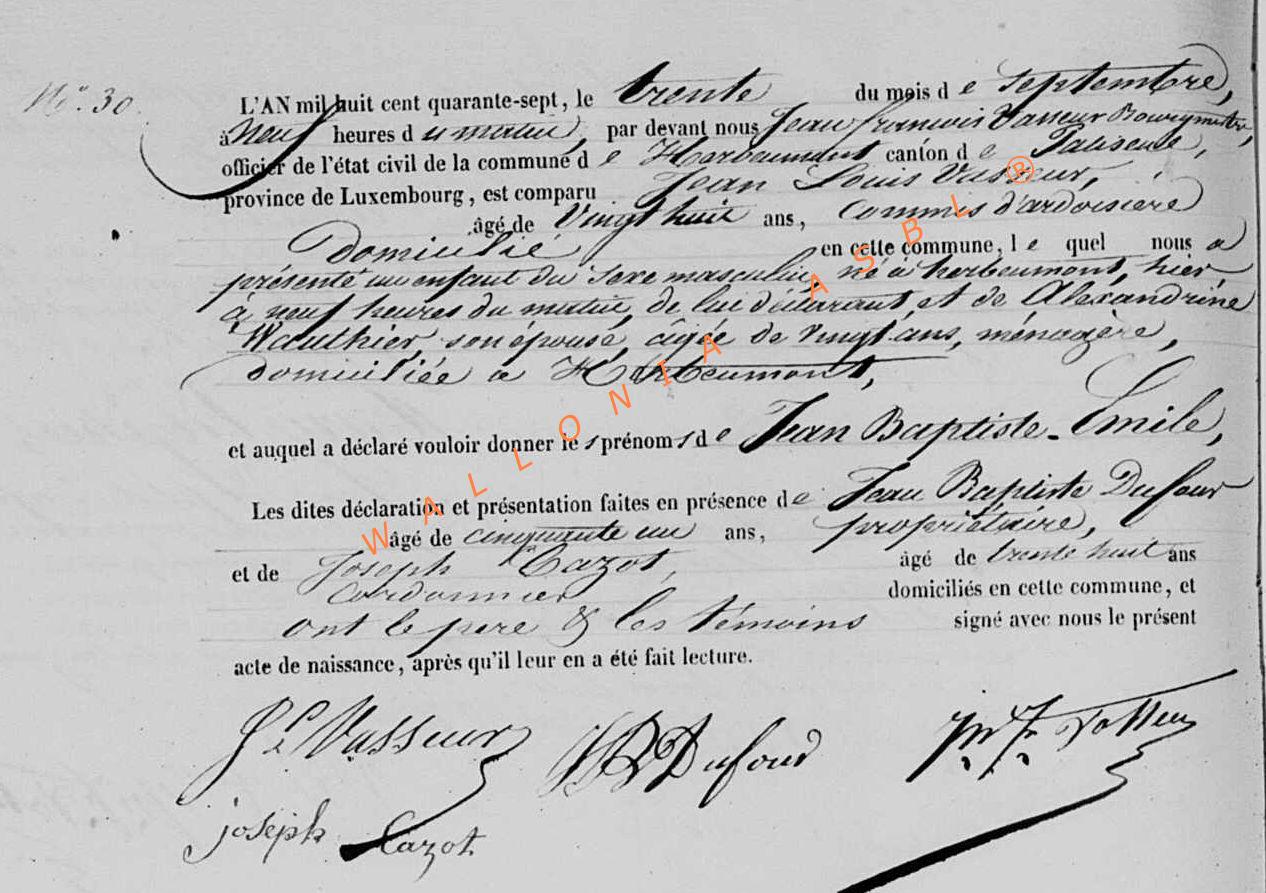 N.° 30
L'AN mil huit cent quarante-sept, le trente du mois de septembre,
à Neuf heures du matin, par devant nous Jean françois Vasseur Bourgmestre,
officier de l'état civil de la commune de Herbeumont canton de Paliseul,
province de Luxembourg, est comparu Jean Louis Vasseur,
âgé de Vingt huit ans, Commis d'ardoisière
Domicilié en cette commune, lequel nous a
présenté un enfant du sexe masculin, né à herbeumont, hier
à neuf heures du matin, de lui déclarant, et de Alexandrine
Wauthier son épouse, âgée de vingt ans, ménagère,
domiciliée a Herbeumont,
et auquel a déclaré vouloir donner les prénoms de Jean Baptiste-Emile,
Les dites déclaration et présentation faites en présence de Jean Baptiste Dufour
âgé de cinquante un ans, propriétaire,
et de Joseph Cazot, âgé de trente huit ans
Cordonnier domiciliés en cette commune, et
ont le pere & les témoins signé avec nous le présent
acte de naissance, après qu'il leur en a été fait lecture.
J L Vasseur JB Dufour J F Vasseur
joseph Cazot
WALLONIA ASBL ®